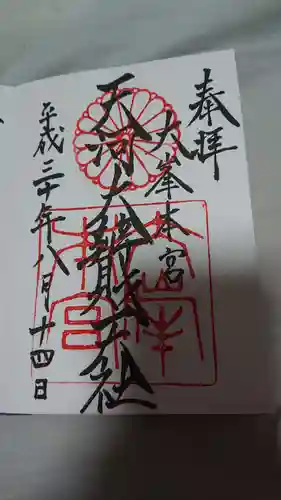 奉拝
大峯本宮
天河大辨財天社
平成三十年八月十四日